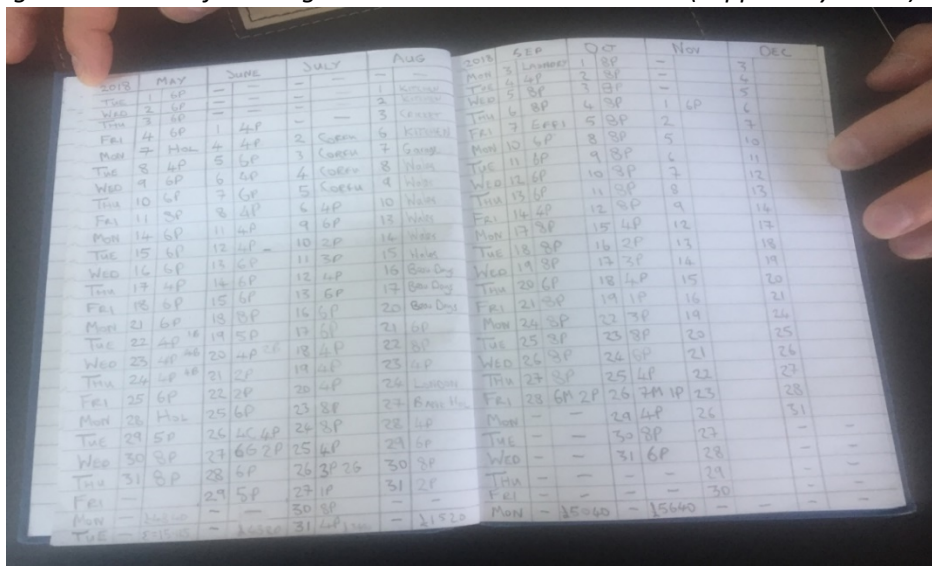 2018 MAY JUNE JULY AUG
TUE 1 6P - - - - 1 KITCHEN
WED 2 6P - - - - 2 KITCHEN
THU 3 6P - - - - 3
FRI 4 6P 1 4P 2 CORFU 6 KITCHEN
MON 7 HOL 4 4P 3 CORFU 7 Garage
TUE 8 4P 5 6P 4 CORFU 8 Wales
WED 9 6P 6 4P 5 CORFU 9 Wales
THU 10 6P 7 6P 6 4P 10 Wales
FRI 11 3P 8 4P 9 6P 13 Wales
MON 14 6P 11 4P 10 2P 14 Wales
TUE 15 6P 12 4P - 11 3P 15 Wales
WED 16 6P 13 6P 12 4P 16 Days
THU 17 4P 14 6P 13 6P 17 Days
FRI 18 6P 15 6P 16 6P 20 Days
MON 21 6P 18 8P 17 6P 21 6P
TUE 22 4P 19 5P 18 4P 22 8P
WED 23 4P 20 4P 19 4P 23 4P
THU 24 4P 21 2P 20 4P 24 LONDON
FRI 25 6P 22 2P 23 8P 27 BANK HOL
MON 28 HOL 25 6P 24 8P 28 4P
TUE 29 5P 26 4C 4P 25 4P 29 6P
WED 30 8P 27 6G 2P 26 3P 2G 30 8P
THU 31 8P 28 6P 27 1P 31 2P
FRI - 29 5P 30 8P - -
MON - - - 31 4P - £1520
TUE -
2018 SEP OCT NOV DEC
MON 3 LAUNDRY 1 8P - 3
TUE 4 4P 2 8P - 4
WED 5 8P 3 8P - 5
THU 6 8P 4 8P 1 6P 6
FRI 7 5 8P 2 7
MON 10 6P 8 8P 5 10
TUE 11 6P 9 8P 6 11
WED 12 6P 10 8P 7 12
THU 13 6P 11 8P 8 13
FRI 14 6P 12 8P 9 14
MON 17 8P 15 4P 12 17
TUE 18 8P 16 2P 13 18
WED 19 8P 17 3P 14 19
THU 20 6P 18 4P 15 20
FRI 21 8P 19 1P 16 21
MON 24 8P 22 3P 19 24
TUE 25 3P 23 8P 20 25
WED 26 8P 24 6P 21 26
THU 27 8P 25 4P 22 27
FRI 28 6M 2P 26 7M 1P 23 28
MON - - 29 4P 26 31
TUE - - 30 8P 27 -
WED - - 31 6P 28 -
THU - - - - 29 -
FRI - - - - 30 -
MON - £5040 - £5640 - -